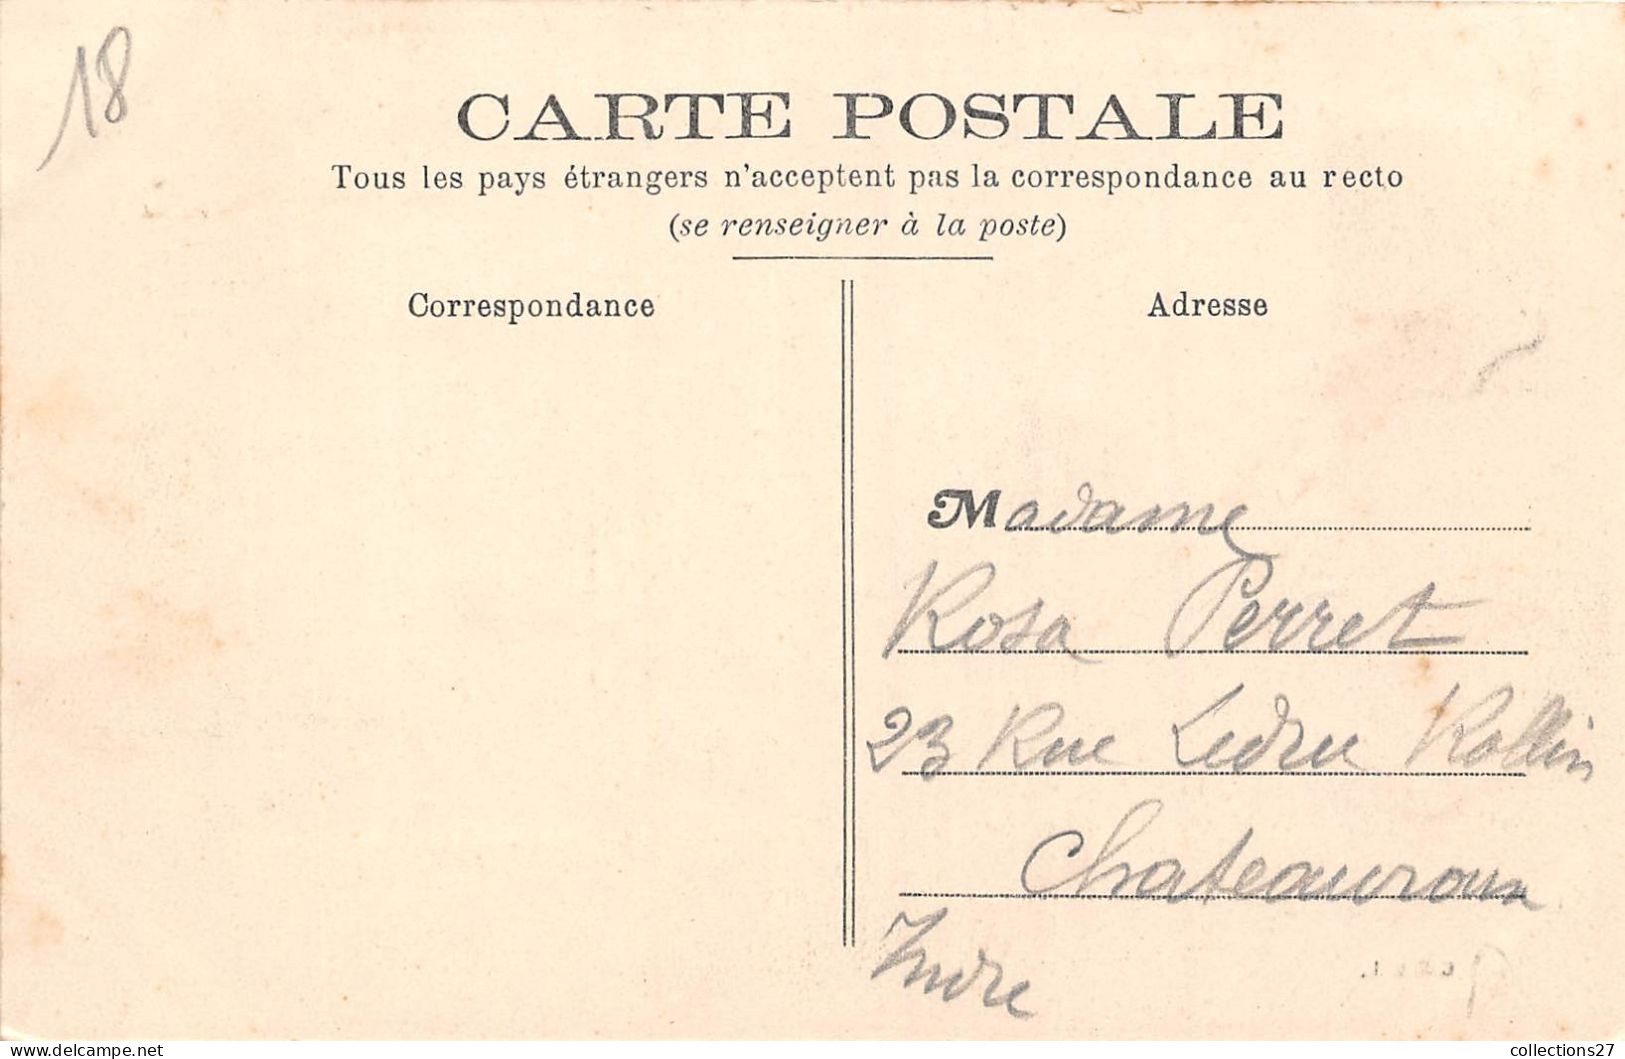 18
CARTE POSTALE
Tous les pays étrangers n'acceptent pas la correspondance au recto
(se renseigner à la poste)
Correspondance
Adresse
Madame
Rosa Perret
23 Rue Ledru Rollin
Chateauroux
Indre
collections27
www.delcampe.net